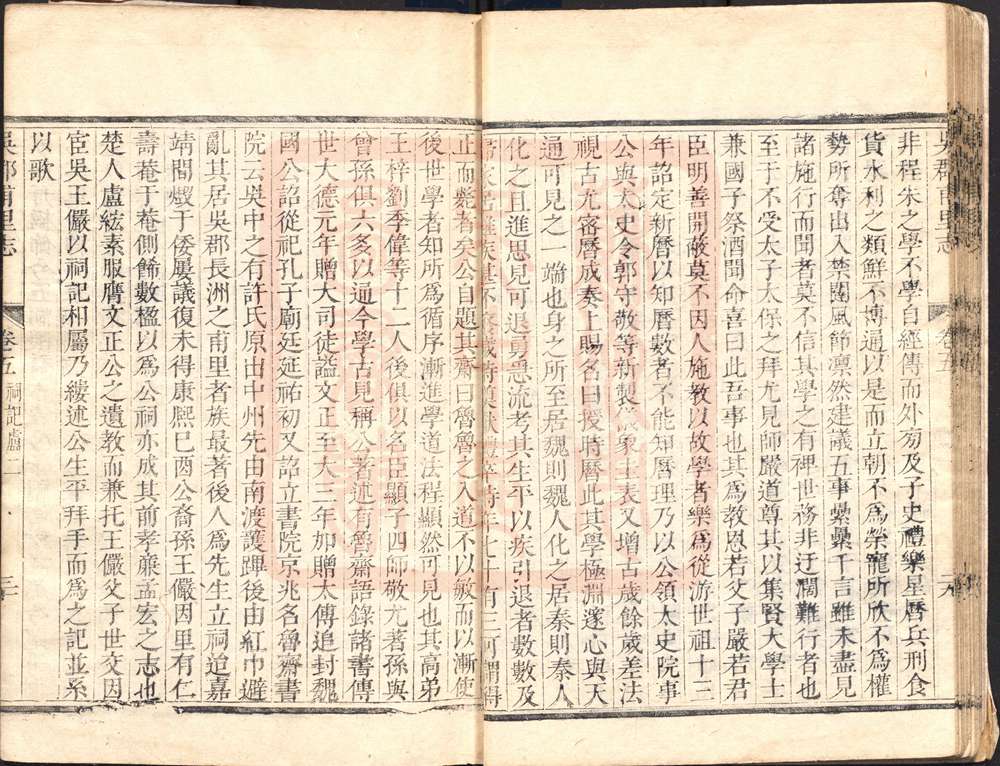 非程朱之學不學自經傳而外旁及子史禮樂星曆兵刑食
貨水利之類鮮不博通以是而立朝不爲榮寵所欣不爲權
勢所奪出入禁闥風節凛然建議五事纍纍千言雖未盡見
諸施行而聞者莫不信其學之有裨世務非迂闊難行者也
至于不受太子太保之拜尤見師嚴道尊其以集賢大學士
兼國子祭酒聞命喜曰此吾事也其爲教恩若父子嚴若君
臣明善開蔽莫不因人施教以故學者樂爲從游世祖十三
年詔定新曆以知曆數者不能知曆理乃以公領太史院事
公與太史令郭守敬等新製儀象圭表又增古歲餘歲差法
視古尤密曆成奏上賜名曰授時曆此其學極淵邃心與天
通可見之一端也身之所至居魏則魏人化之居秦則秦人
化之且進思見可退勇急流考其生平以疾引退者數數及
正而斃者矣公自題其齋曰魯魯之入道不以敏而以漸使
後世學者知所爲循序漸進學道法程顯然可見也其高弟
王梓劉季偉等十二人後俱以名臣顯子四師敬尤著孫與
曾孫俱六多以通今學古見稱公著述有魯齋語錄諸書傳
世大德元年贈大司徒謚文正至大三年加贈太傅追封魏
國公詔從祀孔子廟廷延祐初又詔立書院京兆名魯齋書
院云吳中之有許氏原出中州先由南渡護蹕後由紅巾避
亂其居吳郡長洲之甫里者族最著後人爲先生立祠迨嘉
靖間燬于倭屢議復未得康熙巳酉公裔孫王儼因里有仁
壽菴于菴側餙數楹以爲公祠亦成其前孝廉孟宏之志也
楚人盧綋素服膺文正公之遺教而兼托王儼父子世交因
宦吳王儼以祠記相屬乃縷述公生平拜手而爲之記並系
以歌
吳郡甫里志
卷五
祠記
三